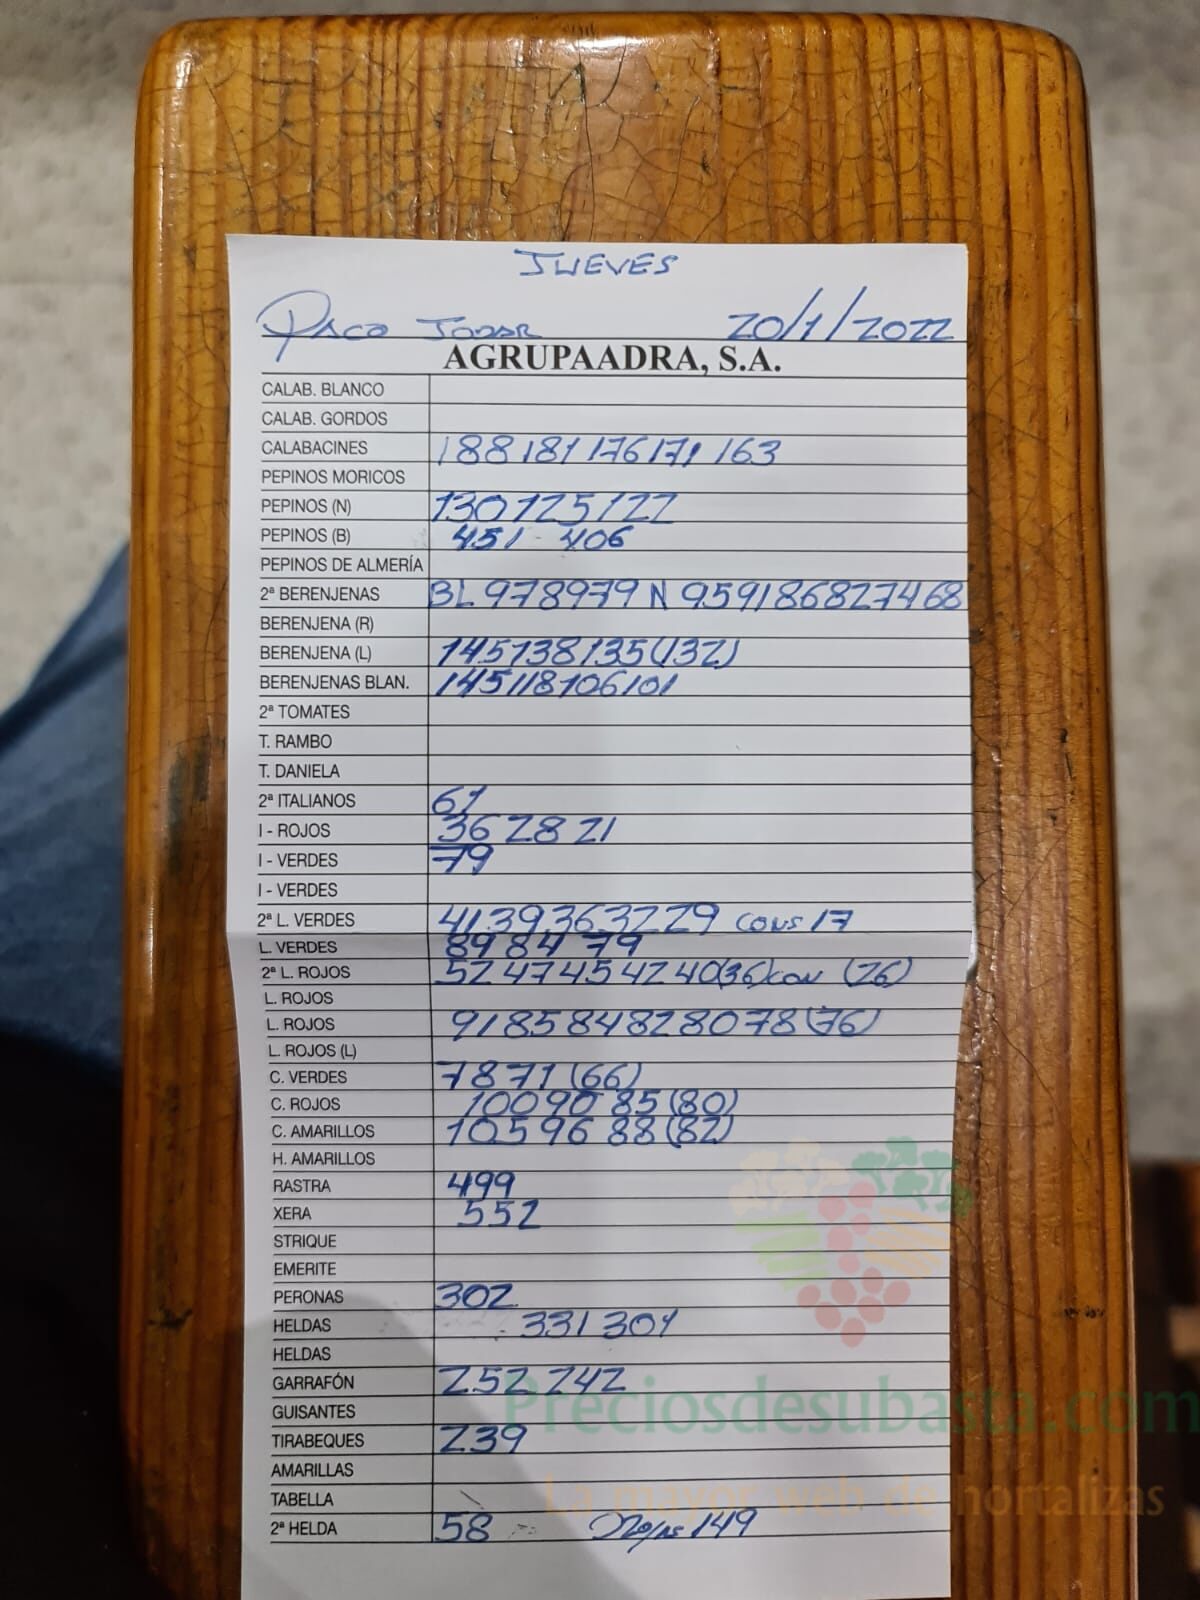 JUEVES
PACO JODAR 20/1/2022
AGRUPAADRA, S.A.
CALAB. BLANCO
CALAB. GORDOS
CALABACINES 188 181 176 171 163
PEPINOS MORICOS
PEPINOS (N) 130 125 122
PEPINOS (B) 451 406
PEPINOS DE ALMERÍA
2ª BERENJENAS BL 97 89 79 N 95 91 86 82 74 68
BERENJENA (R)
BERENJENA (L) 145 138 135 (132)
BERENJENAS BLAN. 145 118 106 101
2ª TOMATES
T. RAMBO
T. DANIELA
2ª ITALIANOS 61
I - ROJOS 36 28 21
I - VERDES 79
I - VERDES
2ª L. VERDES 41 39 36 32 29 CONS 17
L. VERDES 89 84 79
2ª L. ROJOS 52 47 45 42 40 (36) CON (26)
L. ROJOS
L. ROJOS 91 85 84 82 80 78 (76)
L. ROJOS (L)
C. VERDES 78 71 (66)
C. ROJOS 100 90 85 (80)
C. AMARILLOS 105 96 88 (82)
H. AMARILLOS
RASTRA 499
XERA 552
STRIQUE
EMERITE
PERONAS 302
HELDAS 331 301
HELDAS
GARRAFÓN 252 242
GUISANTES
Preciosdesubasta.com
TIRABEQUES 239
AMARILLAS
La mayor web de hortalizas
TABELLA
2ª HELDA 58 149